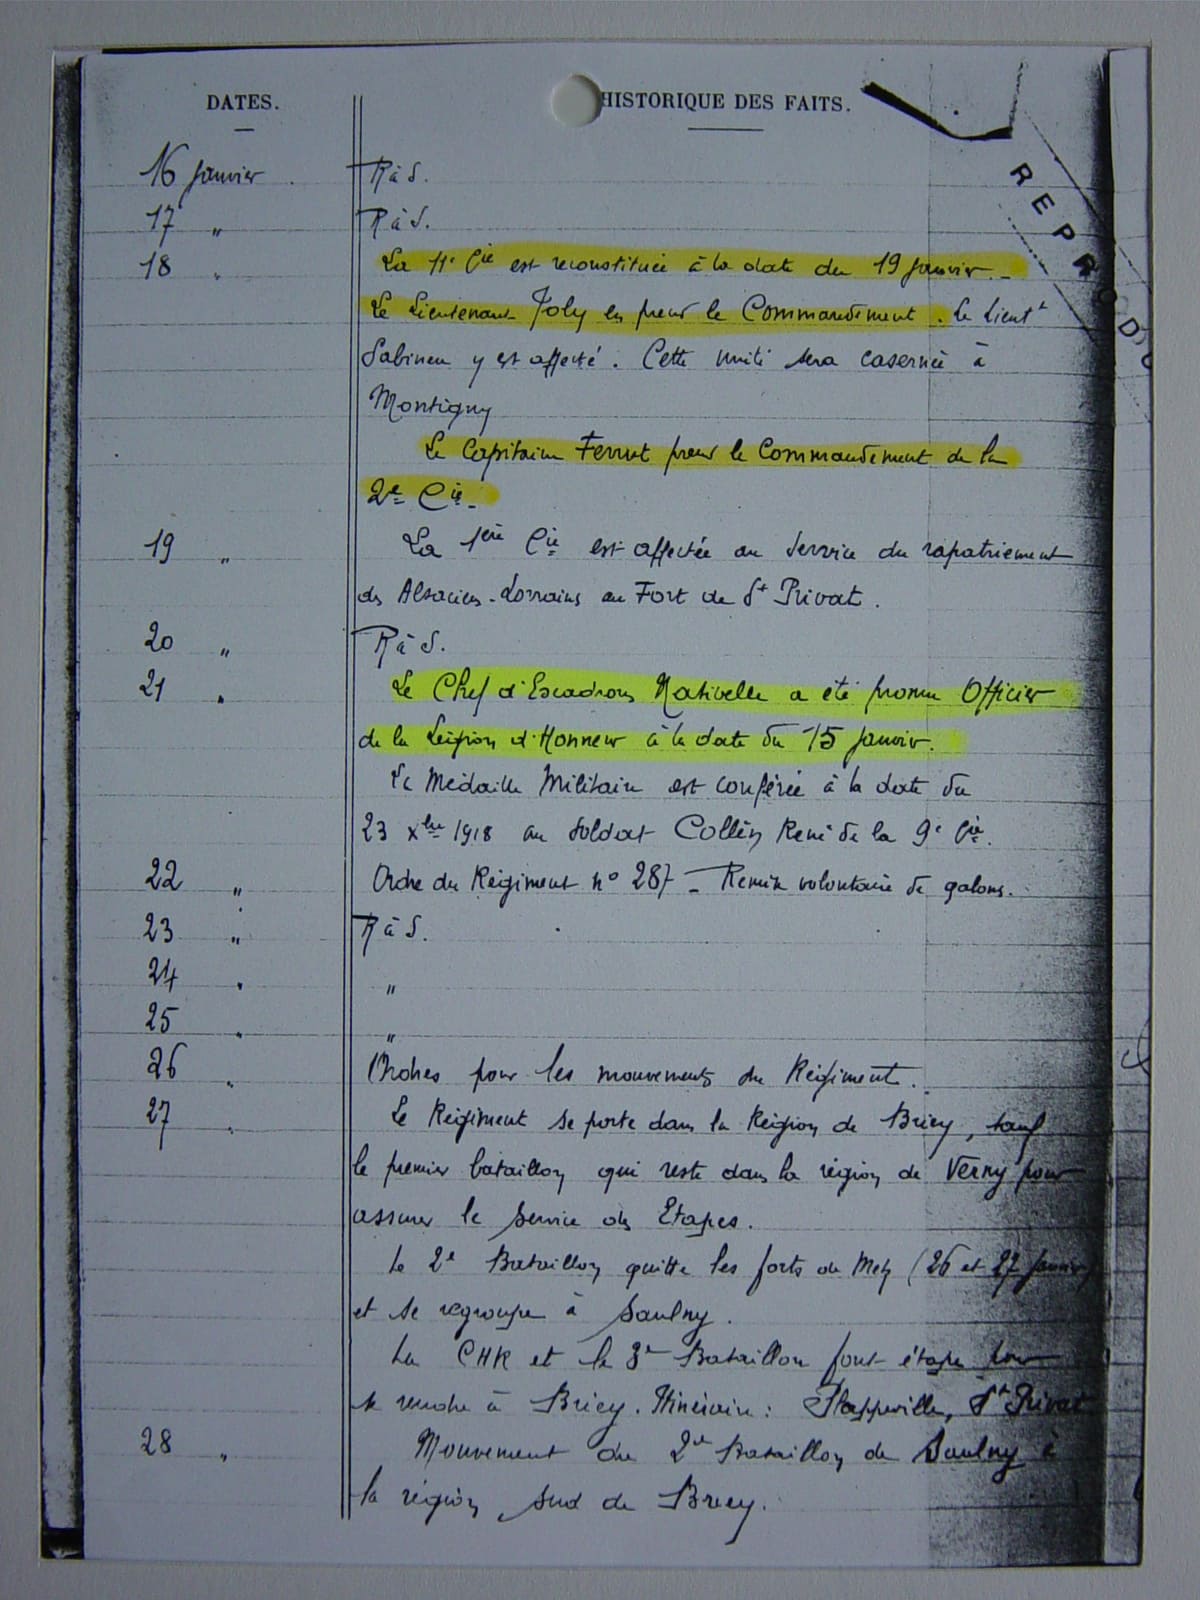 DATES. HISTORIQUE DES FAITS.
REPRODU
16 Janvier R à S.
17 " R à S.
18 " La 11e Cie est reconstituée à la date du 19 Janvier. -
Le Lieutenant Joly en prend le Commandement. Le Lieutt
y est affecté. Cette unité sera casernée à
Montigny
Le Capitaine Ferrut prend le Commandement de la
2e Cie -
19 " La 1ère Cie est affectée au Service du rapatriement
des Alsaciens-Lorrains au Fort de St Privat.
20 " R à S.
21 " Le Chef d'Escadrons Nativelle a été promu Officier
de la Légion d'Honneur à la date du 15 Janvier.
La Médaille Militaire est conférée à la date du
23 Xbre 1918 au Soldat Collin René de la 9e Cie.
22 " Ordre du Régiment no 287 - Remise volontaire de galons.
23 " R à S.
24 " "
25 " "
26 " Ordres pour les mouvements du Régiment.
27 " Le Régiment se porte dans la Région de Briey, sauf
le premier bataillon qui reste dans la région de Verny pour
assurer le Service des Etapes.
Le 2e Bataillon quitte les forts de Metz (26 et 27 Janvier)
et se regroupe à Saulny.
La CHR et le 3e Bataillon font étape pour
se rendre à Briey. Itinéraire: Plappeville, St Privat
28 " Mouvement du 2e Bataillon de Saulny à
la région sud de Briey.